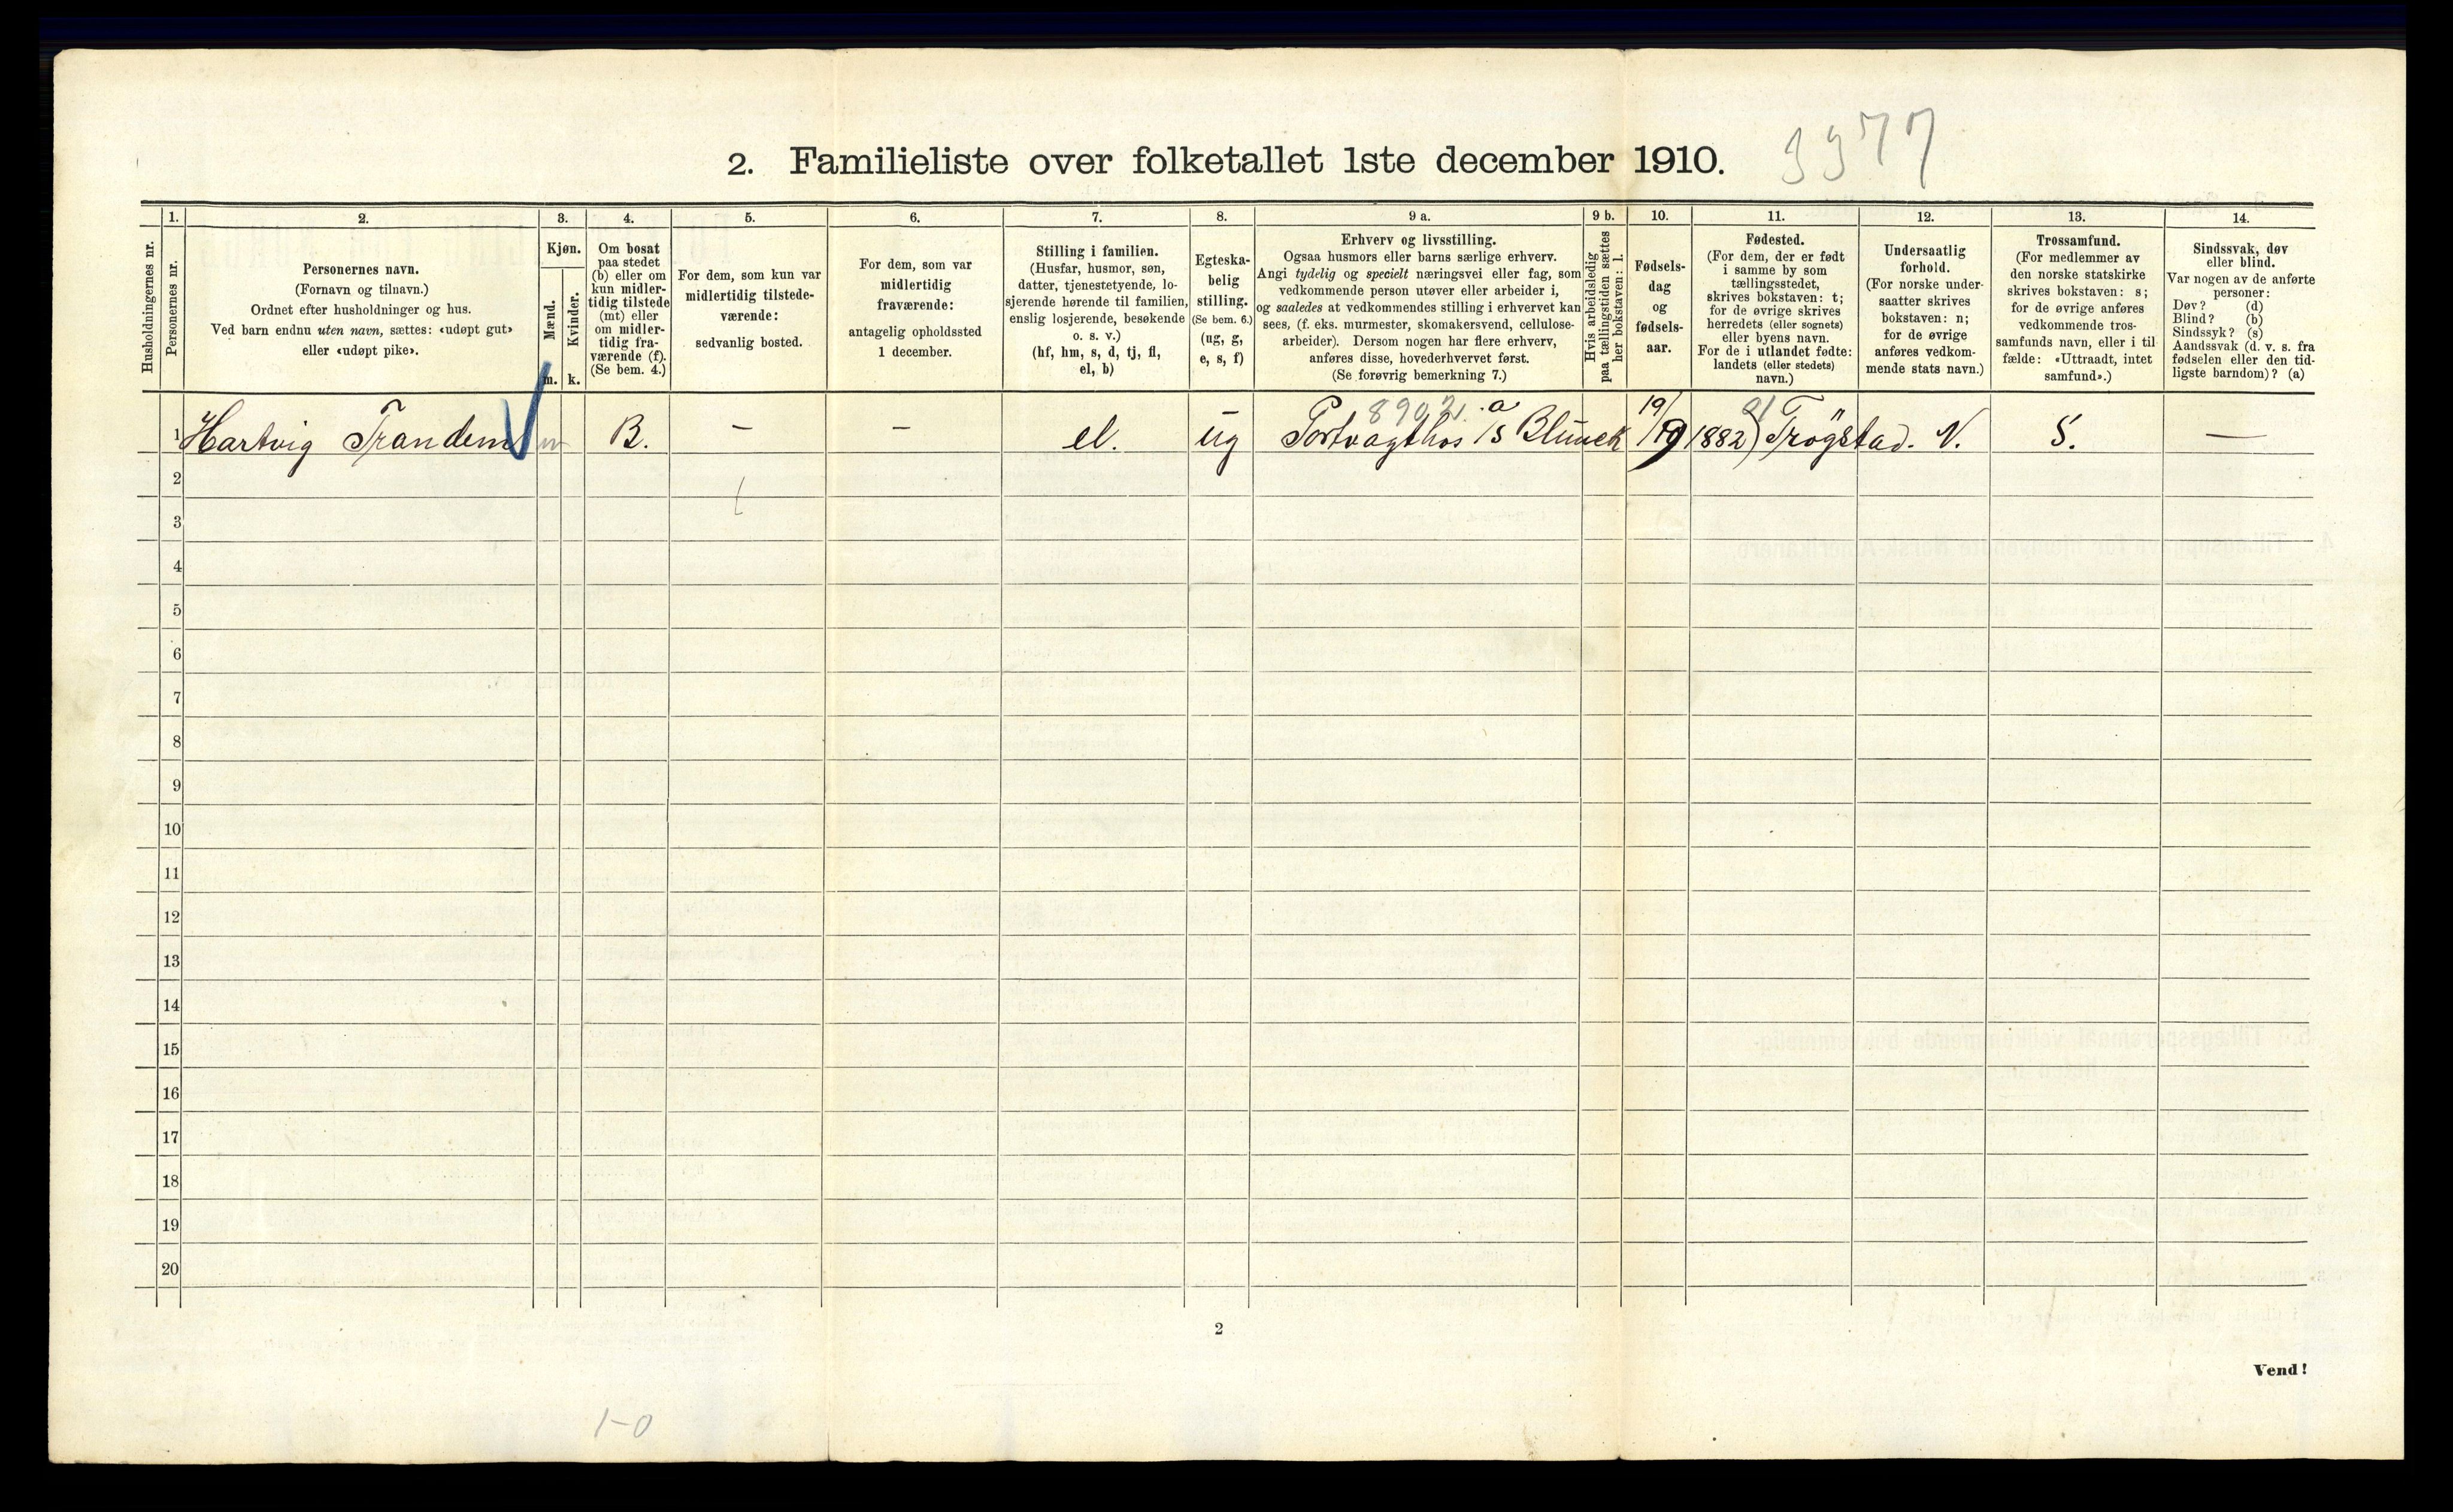 2. Familieliste over folketallet 1ste december 1910.
3977
Husholdningernes nr.
1.
Personernes nr.
2.
Personernes navn.
(Fornavn og tilnavn.)
Ordnet efter husholdninger og hus.
Ved barn endnu uten navn, sættes: «udøpt gut»
eller «udøpt pike».
3.
Kjøn.
Mænd.
m.
Kvinder.
k.
4.
Om bosat
paa stedet
(b) eller om
kun midler-
tidig tilstede
(mt) eller
om midler-
tidig fra-
værende (f).
(Se bem. 4.)
5.
For dem, som kun var
midlertidig tilstede-
værende:
sedvanlig bosted.
6.
For dem, som var
midlertidig
fraværende:
antagelig opholdssted
1 december.
7.
Stilling i familien.
(Husfar, husmor, søn,
datter, tjenestetyende, lo-
sjerende hørende til familien,
enslig losjerende, besøkende
o. s. v.)
(hf, hm, s, d, tj, fl,
el, b)
8.
Egteska-
belig
stilling.
(Se bem. 6.)
(ug, g,
e, s, f)
9 a.
Erhverv og livsstilling.
Ogsaa husmors eller barns særlige erhverv.
Angi tydelig og specielt næringsvei eller fag, som
vedkommende person utøver eller arbeider i,
og saaledes at vedkommendes stilling i erhvervet kan
sees, (f. eks. murmester, skomakersvend, cellulose-
arbeider). Dersom nogen har flere erhverv,
anføres disse, hovederhvervet først.
(Se forøvrig bemerkning 7.)
9 b.
Hvis arbeidsledig
paa tællingstiden sættes
her bokstaven: l.
10.
Fødsels-
dag
og
fødsels-
aar.
11.
Fødested.
(For dem, der er født
i samme by som
tællingsstedet,
skrives bokstaven: t;
for de øvrige skrives
herredets (eller sognets)
eller byens navn.
For de i utlandet fødte:
landets (eller stedets)
navn.)
12.
Undersaatlig
forhold.
(For norske under-
saatter skrives
bokstaven: n;
for de øvrige
anføres vedkom-
mende stats navn.)
13.
Trossamfund.
(For medlemmer av
den norske statskirke
skrives bokstaven: s;
for de øvrige anføres
vedkommende tros-
samfunds navn, eller i til-
fælde: «Uttraadt, intet
samfund».)
14.
Sindssvak, døv
eller blind.
Var nogen av de anførte
personer:
Døv? (d)
Blind? (b)
Sindssyk? (s)
Aandssvak (d. v. s. fra
fødselen eller den tid-
ligste barndom)? (a)
1 Hartvig Trandem m B. — — el. ug Portvagt hos A/s Blunck 19/ 1882 Trögstad. N. S. —
2
3
4
5
6
7
8
9
10
11
12
13
14
15
16
17
18
19
20
2
Vend!
1-0